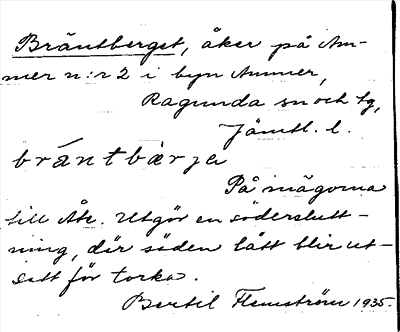 Bräntberget, åker på Am-
mer n:r 2 i byn Ammer,
Ragunda sn och tg,
Jämtl. l.
bräntbärja
På inägorna
till Åk. Utgör en södersluтt-
ning, där säden lätt blir ut-
satt för torka.
Bertil Flemström 1935.